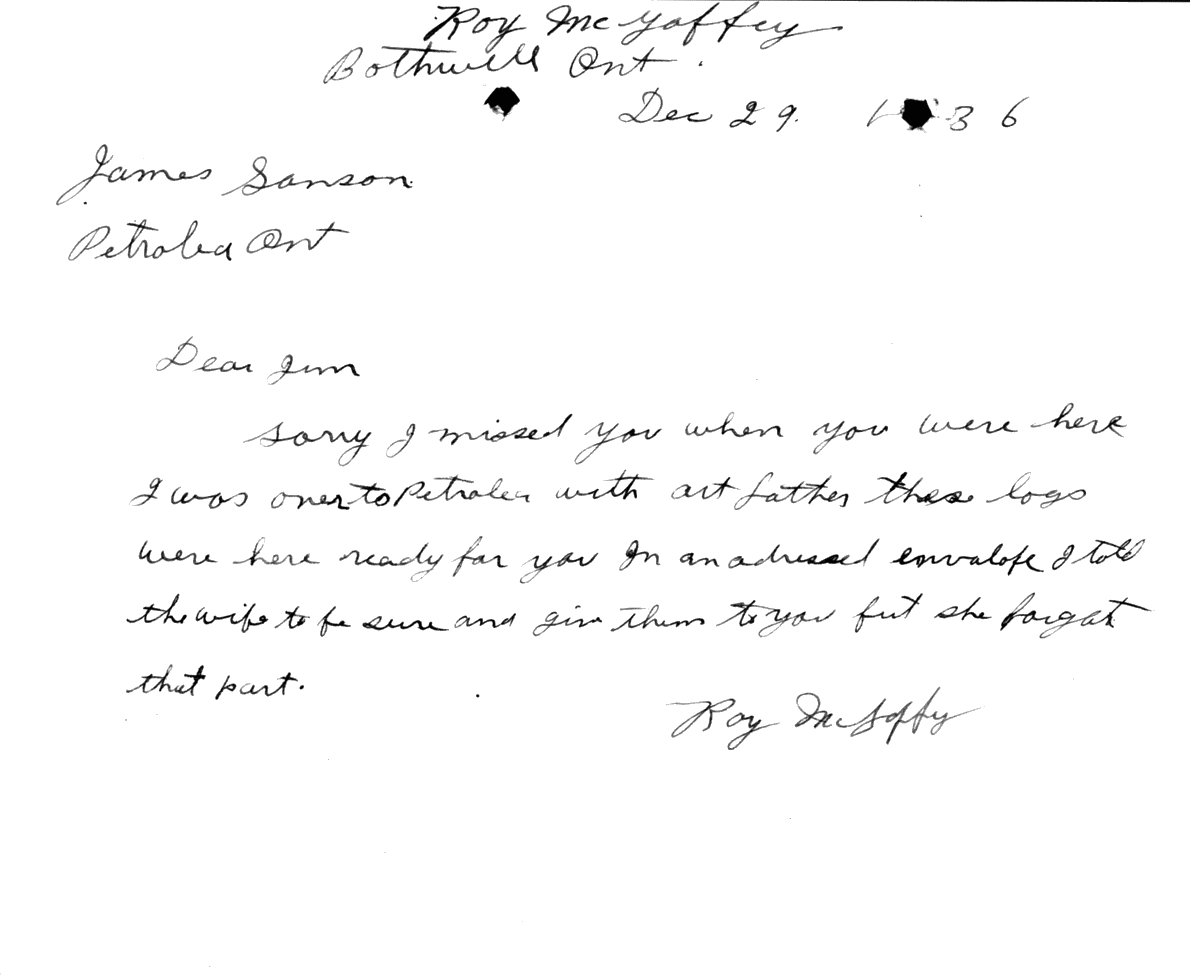 Roy McGaffey
Bothwell Ont.
Dec 29. 1 36
James Sanson
Petrolea Ont
Dear Jim
Sorry I missed you when you were here
I was over to Petrolea with art father these logs
were here ready for you In an adressed envalope I told
the wife to be sure and give them to you but she forgot
that part.
Roy McGaffey